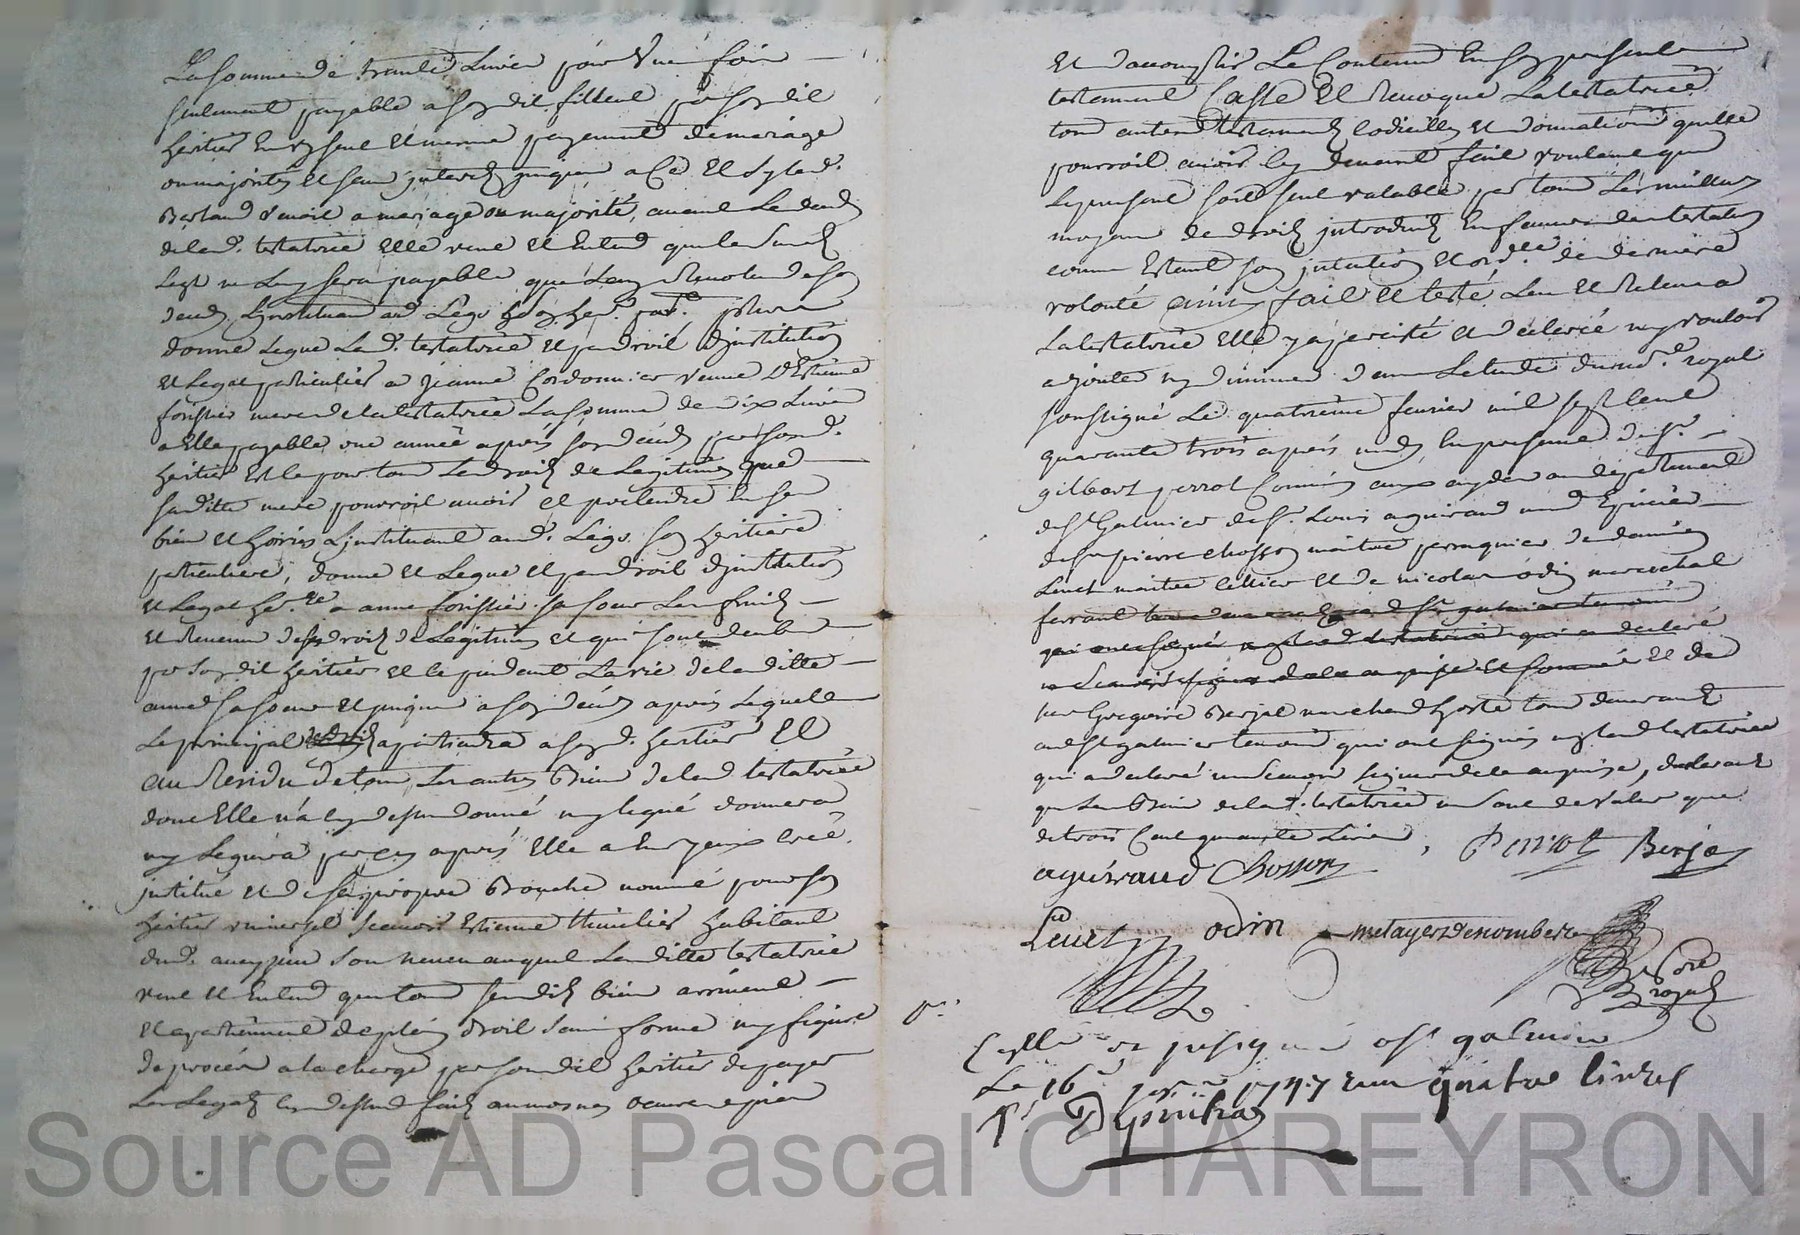 La somme de trante Livres pour Une fois
seulement payable a son dit filleul par son dit
heritier en un seul et meme payement de mariage
ou majorité et sans interest jusques a ce et sy led.
Bertand venoit a mariage ou majorité, avant le deces
de lad. testatrice elle veut et entend que le susd.
Legt ne luy sera payable que
deces, L'instituant aud Legs
donne Legue Lad. testatrice et par droit d'institution
et Legat particulier a jeanne Cordonnier veuve d'Estienne
forissier mere de la testatrice La somme de dix Livres
a Elle payable une année aprés son deces par son d.
heritier Et ce pour tous Les droits de Legitime que
sa ditte mere pourroit avoir et pretendre en ses
biens et hoiries L'instituant aud. Legs. son heritiere
particuliere, donne et Legue et par droit d'institution
et Legat a anne forissier sa soeur Les fruits
et Revenus des droits de Legitime et qui sont deubs
par son dit heritier et ce pendant La vie de la ditte
anne sa soeur et jusques a son deces aprés Lequel
Le principal apartiendra a son d. heritier Et
au Residu de tous Les autres Biens de lad testatrice
dont Elle n'a cy dessus donné ny legué donnera
ny Leguera par cy aprés Elle a heritier creé
institué et de sa propre Bouche nommé pour son
heritier universel Estienne thiollier habitant
dud. son neveu auquel La ditte testatrice
veut et entend que tous ses dits biens arrivent
et apartiennent de plein droit sans forme ny figure
de procés a la charge par son dit heritier de payer
Les Legats cy dessus faits aumosnes oeuvres pies
Et d'accomplir Le Contenu En son present
testament Casse Et Revoque La testatrice
tous autres testaments codicilles et donnations quelle
pourroit avoir cy devant fait voulant que
Le present soit seul valable par tous Les meilleurs
moyens de droit introduits En faveur des testateurs
comme Estant son intention et ord.ce de derniere
volonté ainsy fait et testé Leu et Releu a
La testatrice elle y a persisté et declaré n'y vouloir
ajouter ny diminuer dans Letude du no.re royal
soussigné Le quatrieme fevrier mil sept cent
quarante trois aprés midy En presence de s.r
gilbert perrot Commis aux aydes au departement
de st Galmier de s.r Louis aguiraud md Epicier
de s.r pierre chosson maitre perruquier de damien
Levet maitre cellier et de nicolas odin marechal
ferrant tous demeurants aud st galmier temoins
qui ont signé non lad testatrice qui a declaré
ne scavoir signer de ce enquise et sommée et de
sieur Gregoire Berjat marchand hoste tous demeurants
aud st galmier temoins qui ont signés non lad testatrice
qui a declaré ne scavoir signer de ce enquise, declarant
que Les Biens de lad. testatrice ne sont de valeur que
de trois Cent quarante Livres, Perrot Berjat
aguiraud Chosson
Levet odin metayer Denombre
no.re
royal
P.r
Cellé et insigné a st galmier
Le 16 1747 Reçu quatre livres
Source AD Pascal CHAREYRON